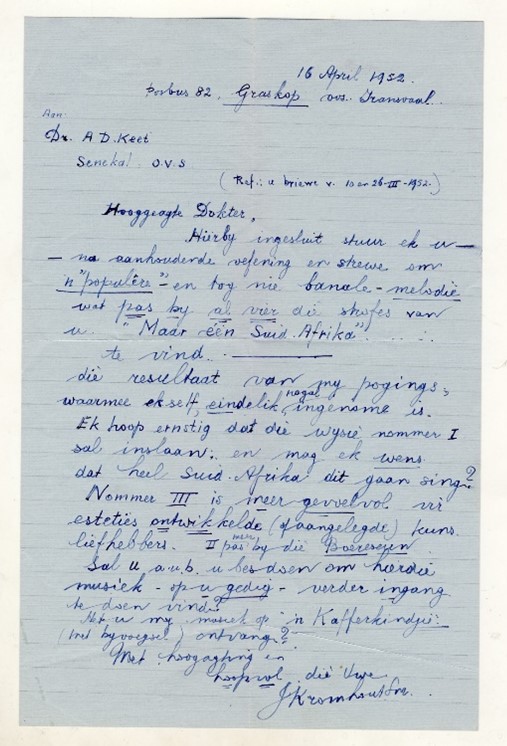 16 April 1952.
Posbus 82, Graskop oos. Transvaal.
Aan:
Dr. A.D. Keet
Senekal O.V.S
(Ref.: u briewe v. 10 en 26-III-1952.)
Hooggeagte Dokter,
Hierby ingesluit stuur ek u —
— na aanhoudende oefening en strewe om
'n "populêre" - en tog nie banale - melodie
wat pas by al vier die strofes van
u "Maar één Suid-Afrika"
te vind.
die resultaat van my pogings,
waarmee ekself eindelik nogal ingenome is.
Ek hoop ernstig dat die wysie nommer I
sal inslaan; en mag ek wens
dat heel Suid-Afrika dit gaan sing?
Nommer III is meer gevoelvol vir
esteties ontwikkelde (of aangelegde) kuns
liefhebbers. II pas meer by die Boereseun
Sal u a.u.b. u bes doen om hierdie
musiek - op u gedig - verder ingang
te doen vind?
Het u my musiek op 'n Kafferkindjie
(met byvoegsel) ontvang?
Met hoogagting en
hoopvol, die Uwe
J Kromhout Snr.